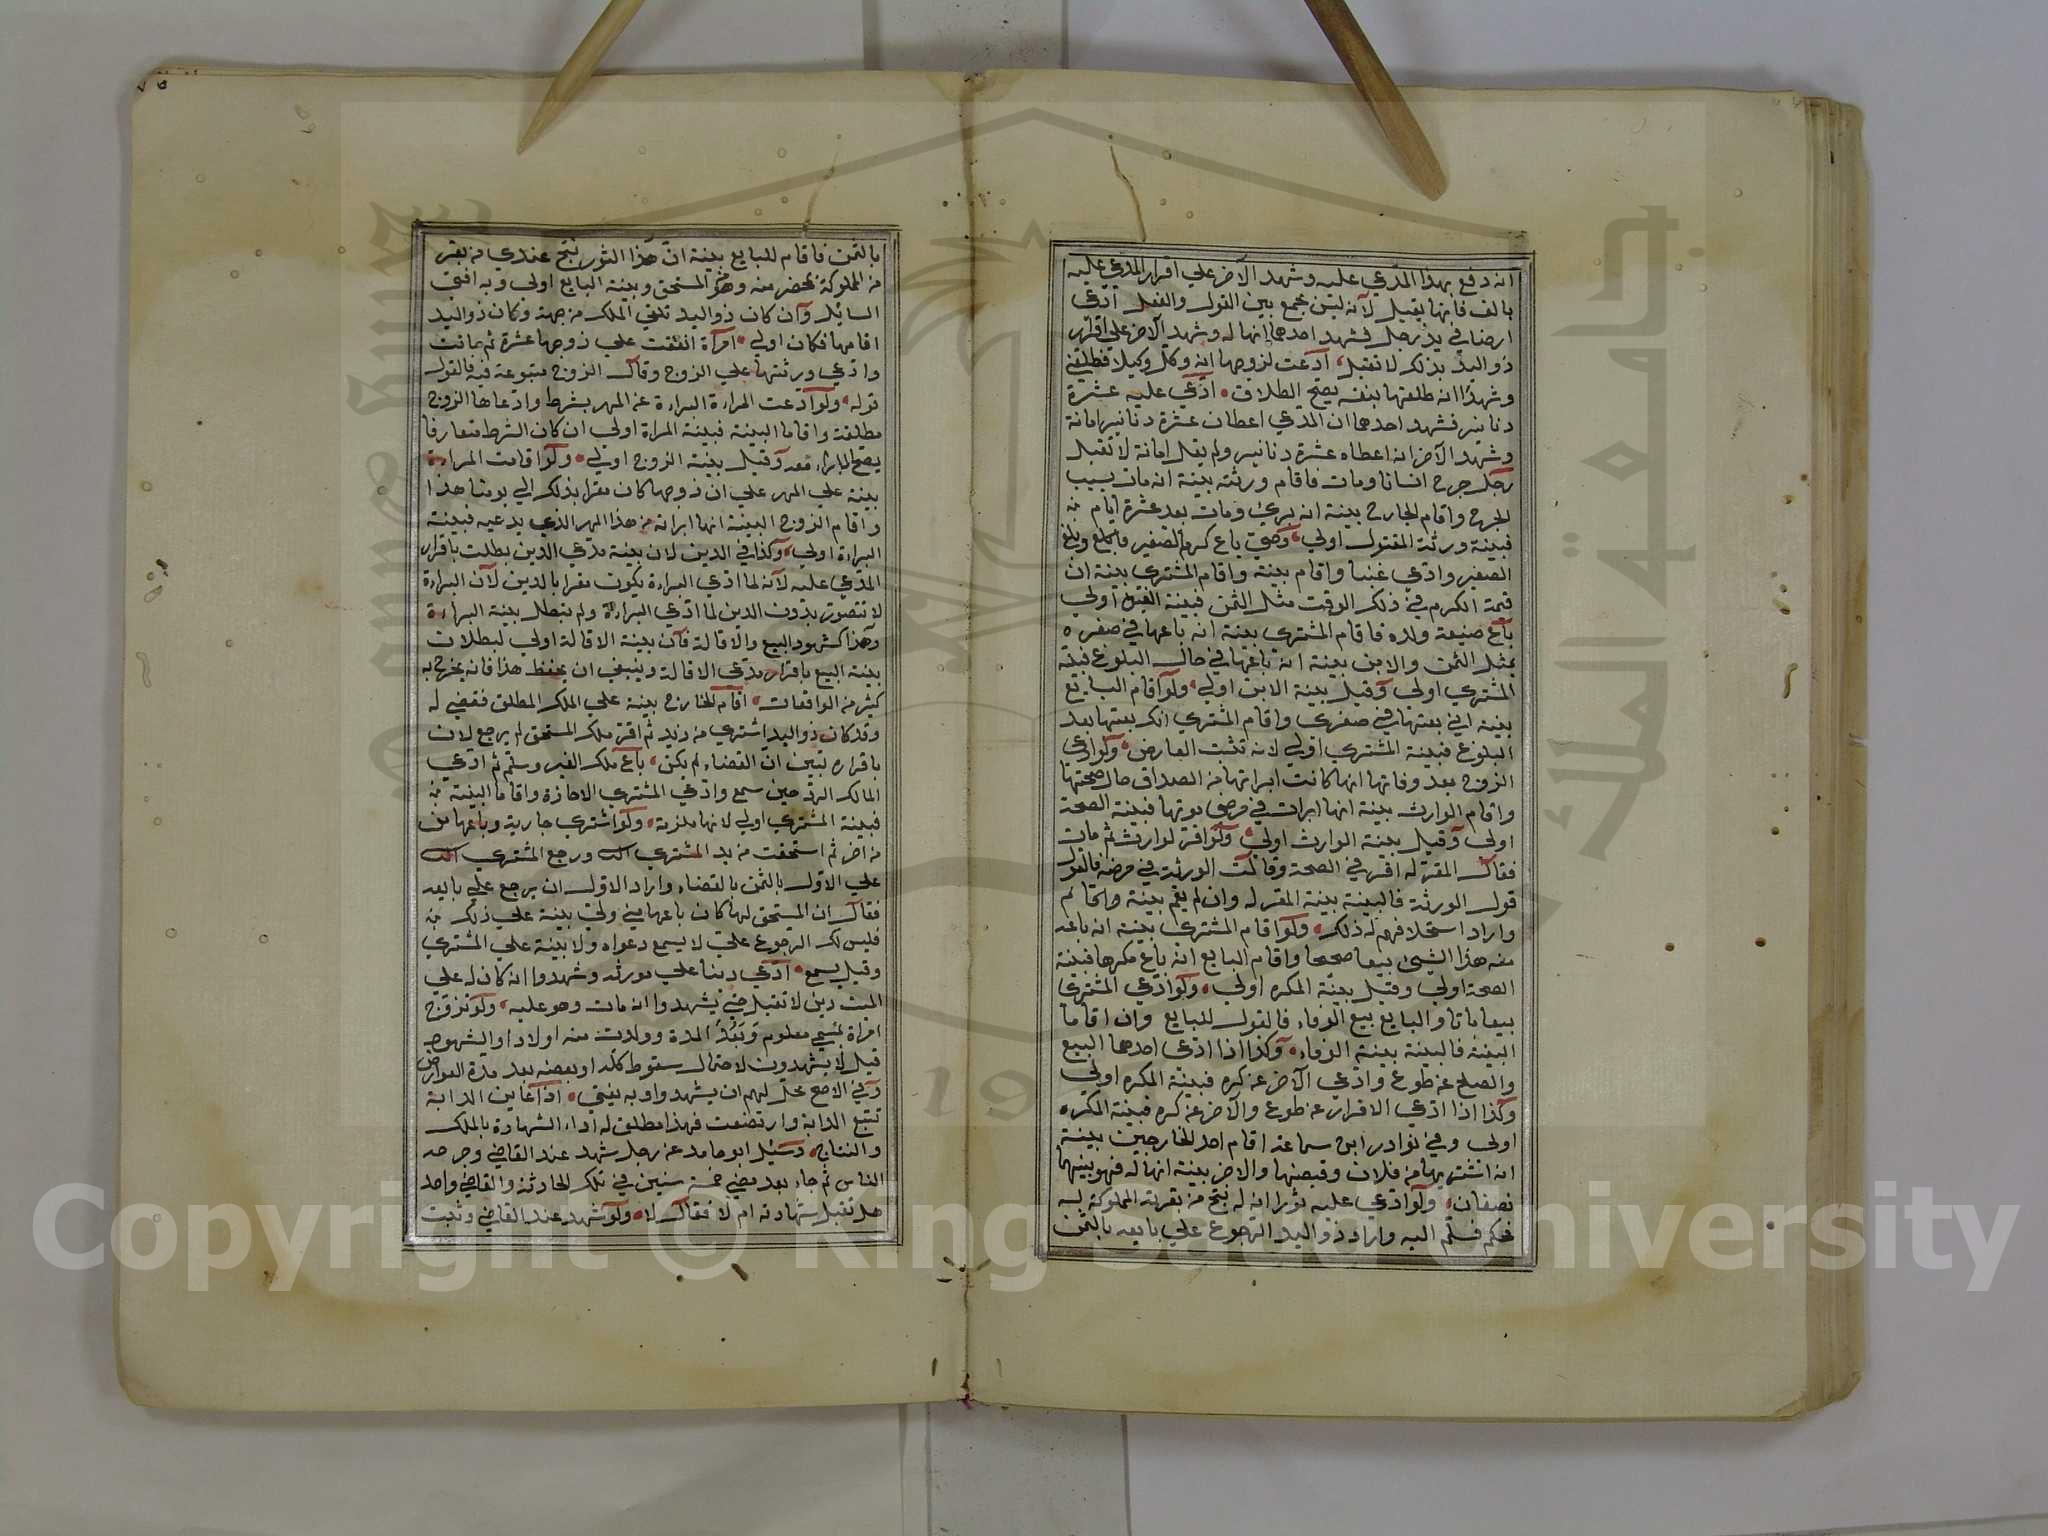 انه دفع بهذا المدعي عليه وشهد الآخر علي اقرار المدعي عليه
بالف فانها يقبل لانه ليس بجمع بين القول والفعل ادعي
ارضا في يد رجل فشهد احدهما انها له وشهد الآخر علي اقرار
ذو اليد بذلك لا تقبل ادعت لزوجها انه وكل وكيلا فطلقني
وشهدا انه طلقها بنفسه يصح الطلاق ادعي عليه عشرة
دنانير فشهد احدهما ان المدعي اعطان عشرة دنانير امانة
وشهد الآخر انه اعطاه عشرة دنانير ولم يقل امانة لا تقبل
رجل جرح انسانا ومات فاقام ورثته بينة انه مات بسبب
الجرح واقام الجارح بينة انه برئ ومات بعد عشرة ايام من
فبينة ورثة المقتول اولي وصي باع كرم الصغير فابلغ وبلغ
الصغير وادعي غبنا واقام بينة واقام المشتري بينة ان
قيمة الكرم في ذلك الوقت مثل الثمن فبينة الغبن اولي
باع ضيعة ولده فاقام المشتري بينة انه باعها في صغره
بمثل الثمن والابن بينة انه باعها في حال البلوغ فبينة
المشتري اولي وقيل بينة الابن اولي ولو اقام البايع
بينة اني بعتها في صغري واقام المشتري انك بعتها بعد
البلوغ فبينة المشتري اولي لانه تثبت العارض ولو ادعي
الزوج بعد وفاتها انها كانت ابراتها من الصداق حال صحتها
واقام الوارث بينة انها ابرات في مرض موتها فبينة الصحة
اولي وقيل بينة الوارث اولي ولو اقر لوارث ثم مات
فقال المقر له اقر في الصحة وقالت الورثة في مرضه فالقول
قول الورثة فالبينة بينة المقر له وان لم يقم بينة
واراد استحلافهم له ذلك ولو اقام المشتري بينة انه باعه
منه هذا الشيئ بيعا صحيحا واقام البايع انه باع مكرها فبينة
الصحة اولي وقيل بينة المكره اولي ولو ادعي المشتري
بيعا باتا والبايع بيع الوفاء فالقول للبايع وان اقاما
البينة فالبينة بينة الوفاء وكذا اذا ادعي احدهما البيع
والصلح عن طوع وادعي الآخر عن كره فبينة المكره اولي
وكذا اذا ادعي الاقرار عن طوع والآخر عن كره فبينة المكره
اولي وفي نوادر ابن سماعة اقام احد الخارجين بينة
انه اشتريها من فلان وقبضها والاخر بينة انها له فهو بينهما
نصفان ولو ادعي عليه ثورا انه له نتج من بقرته المملوكة له
فحكم فسلم اليه واراد ذو اليد الرجوع علي بايعه بالثمن
٧٥
بالثمن فاقام للبايع بينة ان هذا الثور نتج عندي من بقر
من المملوكة بحضر منه وهو المستحق وبينة البايع اولي وبه افتي
السائل وان كان ذو اليد تلقي الملك من جهة فكان ذو اليد
اقامها فكان اولي امرأة انفقت علي زوجها عشرة ثم ماتت
وادعي ورثتها علي الزوج وقال الزوج متبوعة فيه فالقول
قوله ولو ادعت المراءة البراءة عن المهر بشرط وادعاها الزوج
مطلقة واقاما البينة فبينة المراة اولي ان كان الشرط متعارفا
يصح الابراء معه وقيل بينة الزوج اولي ولو اقامت المراءة
بينة علي المهر علي ان زوجها كان مقرا بذلك الي يومنا هذا
واقام الزوج البينة انها ابراته من هذا المهر الذي يدعيه فبينة
البراءة اولي وكذا في الدين لان بينة مدعي الدين بطلت باقرار
المدعي عليه لانه لما ادعي البراءة يكون مقرا بالدين لان البراءة
لا تتصور بدون الدين لما ادعي البراءة ولم يبطل بينة البراءة
وهذا كشهود البيع والاقالة فان بينة الاقالة اولي لبطلان
بينة البيع باقرار مدعي الاقالة وينبغي ان يحفظ هذا فانه يخرج به
كثير من الواقعات اقام الخارج بينة علي الملك المطلق فقضي له
وقد كان ذو اليد اشتري من زيد ثم اقر بملك المستحق لم يرجع لان
باقراره تبين ان القضاء لم يكن باع ملك الغير وسلم ثم ادعي
المالك الرد حين سمع وادعي المشتري الاجازة واقاما البينة من
فبينة المشتري اولي لانها ملزمة ولو اشتري جارية وباعها من
من اخر ثم استحقت من يد المشتري ورجع المشتري
علي الاول بالثمن بالقضاء واراد الاول ان يرجع علي بايعه
فقال ان المستحق لها كان باعها مني ولي بينة علي ذلك من
فليس لك الرجوع علي لا يسمع دعواه ولا بينة علي المشتري
وقيل يسمع ادعي دينا علي مورثه وشهدوا انه كان له علي
الميت دين لا تقبل حتي يشهدوا انه مات وهو عليه ولو تزوج
امراة بمسمي معلوم وبعد المدة وولدت منه اولادا والشهود
قيل لا يشهدون لاحتمال سقوط كله او بعضه بعد مدة العوارض
وفي الاصح يحل لهم ان يشهدوا وبه يفتي اذا عاين الدابة
تتبع الدابة وارتضعت فهذا مطلق له اداء الشهادة بالملك
والنتاج وسئل ابو حامد عن رجل شهد عند القاضي وجرحه
الناس ثم جاء بعد مضي خمسة سنين في تلك الحادثة والقاضي واحد
هل تقبل شهادته ام لا فقال لا ولو شهد عند القاضي وثبت
Copyright © King Saud University